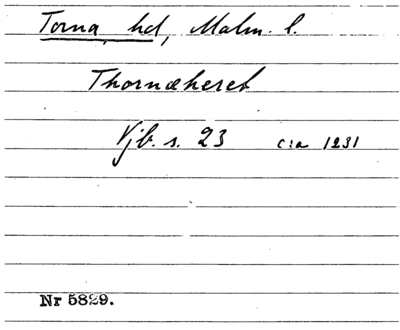 Torna hd, Malm. l.
Thornæheret
Vjb. s. 23 c:a 1231
Nr 5829.